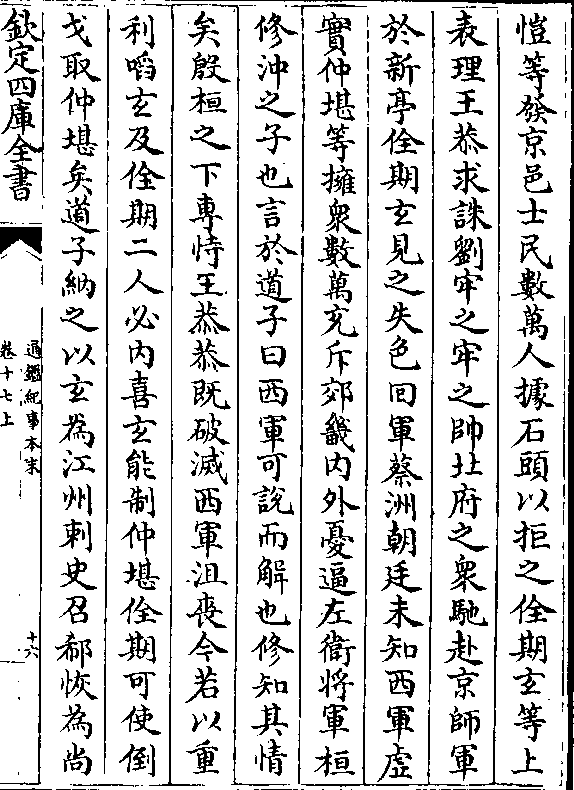 愷等發京邑士民數萬人據石頭以拒之佺期𤣥等上
表理王恭求誅劉牢之牢之帥北府之衆馳赴京師軍
於新亭佺期𤣥見之失色回軍蔡洲朝廷未知西軍虛
實仲堪等擁衆數萬充斥郊畿内外憂逼左衛將軍桓
修沖之子也言於道子曰西軍可說而解也修知其情
矣殷桓之下專恃王恭恭既破滅西軍沮喪今若以重
利㗖𤣥及佺期二人必内喜𤣥能制仲堪佺期可使倒
戈取仲堪矣道子納之以𤣥為江州刺史召郗恢為尚
欽定四庫全書
通鑑紀事本末
卷十七上
十六